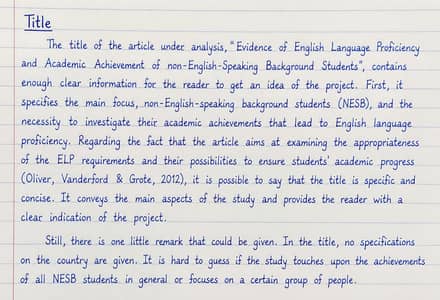 Title
The title of the article under analysis, "Evidence of English Language Proficiency
and Academic Achievement of non-English-Speaking Background Students", contains
enough clear information for the reader to get an idea of the project. First, it
specifies the main focus, non-English-speaking background students (NESB), and the
necessity to investigate their academic achievements that lead to English language
proficiency. Regarding the fact that the article aims at examining the appropriateness
of the ELP requirements and their possibilities to ensure students' academic progress
(Oliver, Vanderford & Grote, 2012), it is possible to say that the title is specific and
concise. It conveys the main aspects of the study and provides the reader with a
clear indication of the project.
Still, there is one little remark that could be given. In the title, no specifications
on the country are given. It is hard to guess if the study touches upon the achievements
of all NESB students in general or focuses on a certain group of people.